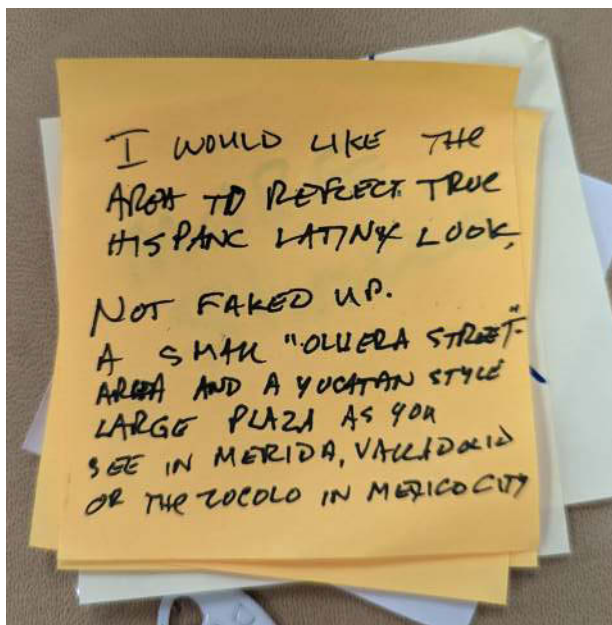 I WOULD LIKE THE
AREA TO REFLECT TRUE
HISPANC LATINX LOOK,
NOT FAKED UP.
A SMALL "OLVERA STREET"
AREA AND A YUCATAN STYLE
LARGE PLAZA AS YOU
SEE IN MERIDA, VALLADOLID
OR THE ZOCOLO IN MEXICO CITY